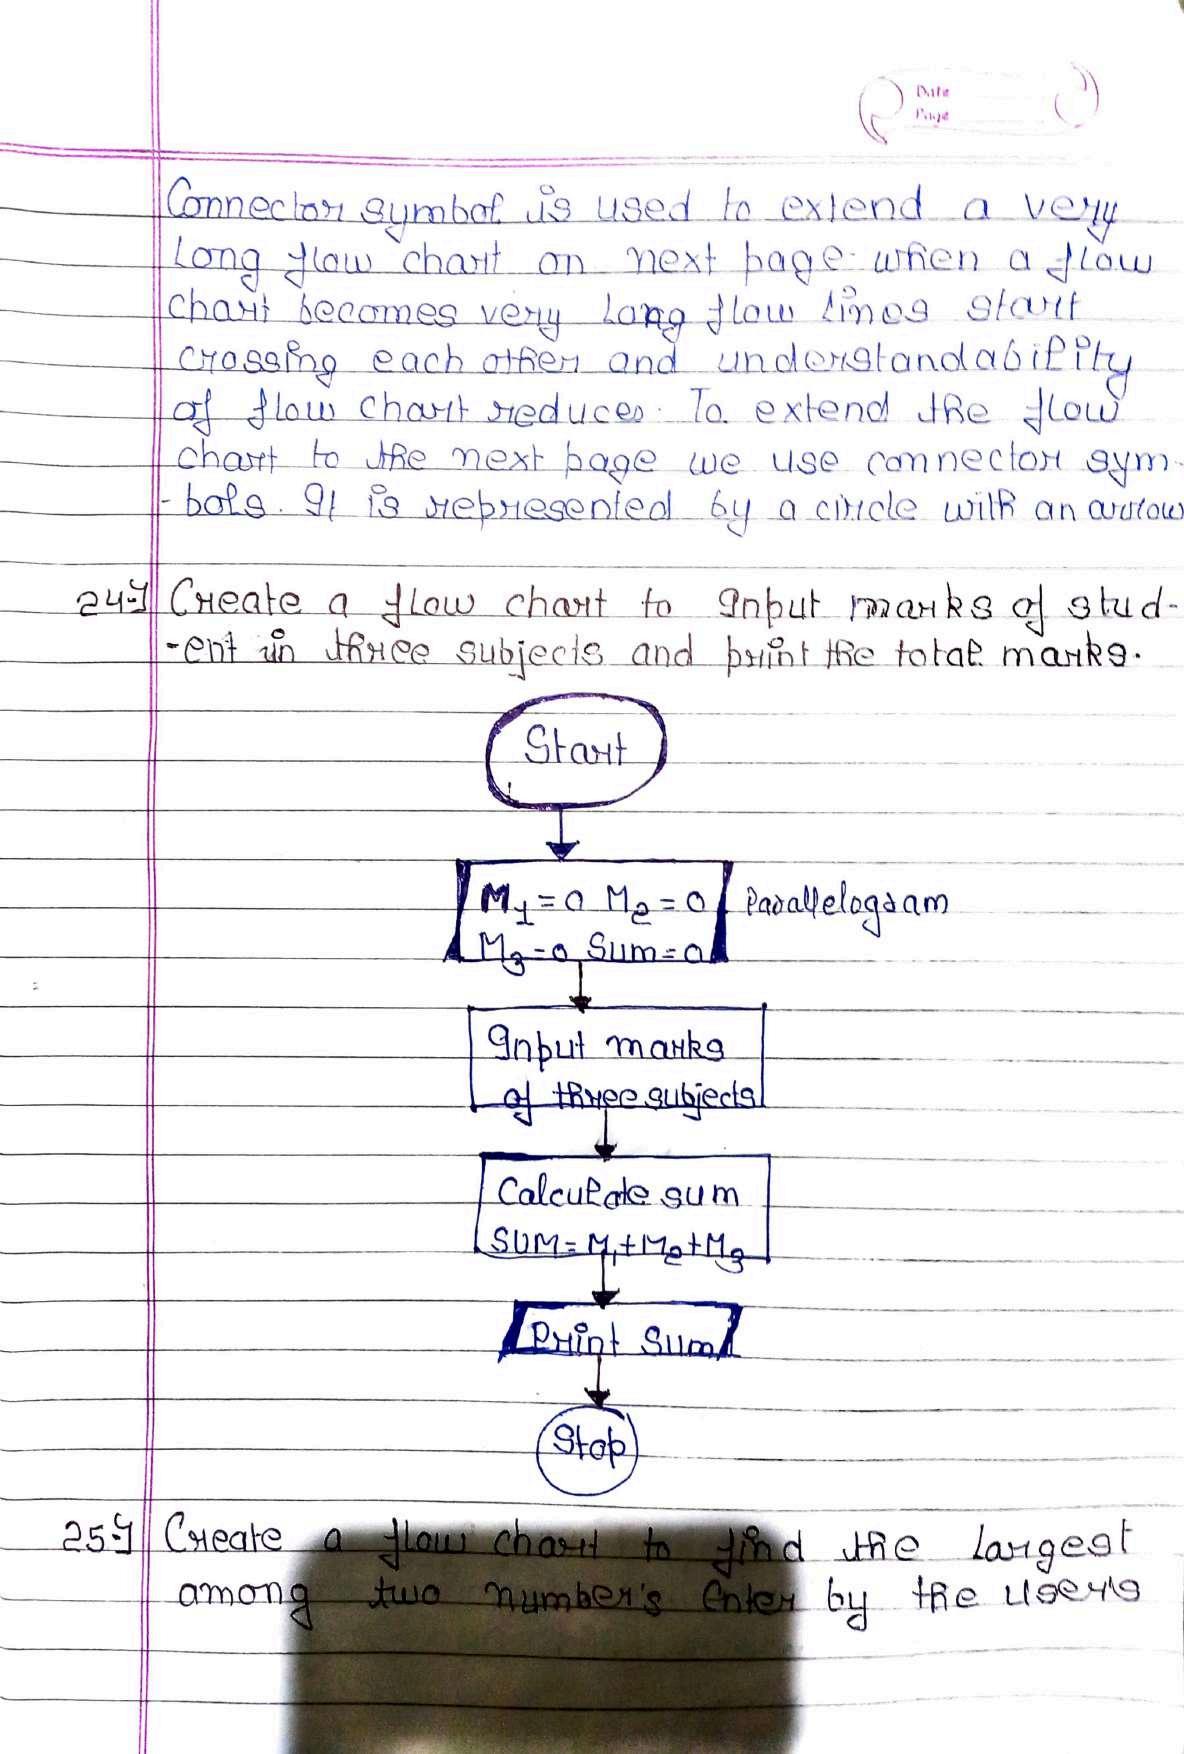 Date
Page
Connector symbol is used to extend a very
long flow chart on next page. when a flow
chart becomes very long flow lines start
crossing each other and understandability
of flow chart reduces. To extend the flow
chart to the next page we use connector sym-
-bols. It is represented by a circle with an arrow
24. Create a flow chart to Input marks of stud-
-ent in three subjects and print the total marks.
Start
M1=0 M2=0
M3=0 Sum=0
Parallelogram
Input marks
of three subjects
Calculate sum
SUM=M1+M2+M3
Print Sum
Stop
25. Create a flow chart to find the largest
among two number's enter by the user's